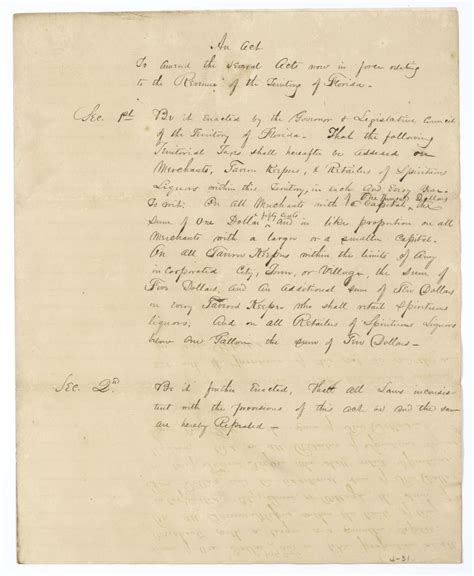 An Act
To amend the several Acts now in force relating
to the Revenue of the Territory of Florida.
Sec. 1st Be it enacted by the Governor & Legislative Council
of the Territory of Florida. That the following
Territorial Taxes shall hereafter be assessed on
Merchants, Tavern Keepers, & Retailers of Spirituous
Liquors within this Territory, in each and Every Year
To wit: On all Merchants with a Capital, the
One Thousand Dollars
sum of One Dollar fifty cents and in like proportion on all
Merchants with a larger or a smaller Capital.
On all Tavern Keepers within the limits of Any
incorporated City, Town, or Village, the sum of
Five Dollars, and An Additional sum of Ten Dollars
on Every Tavern Keeper who shall retail Spirituous
liquors; And on all Retailers of Spirituous Liquors
below One Gallon the sum of Dollars
Sec. 2d Be it further Enacted, That all Laws inconsist
tent with the provisions of this act be and the same
are hereby Repealed —